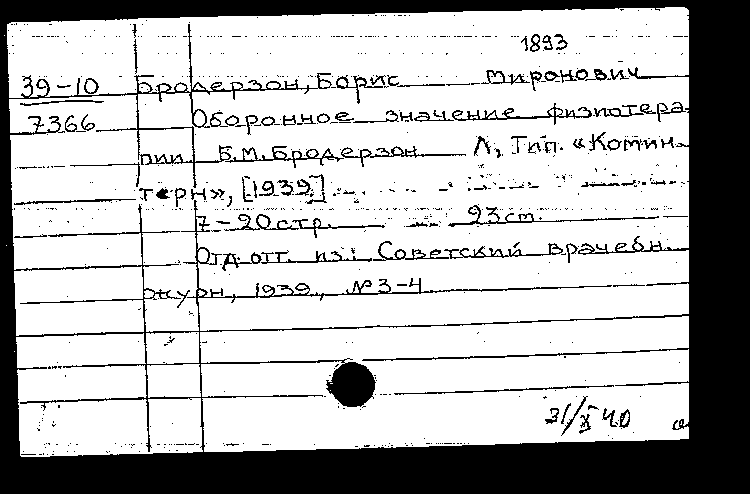 1893
39-10 Бродерзон, Борис Миронович
7366 Оборонное значение физиотера-
пии. Б.М. Бродерзон. Л, Тип. «Комин-
терн», [1939].
7-20 стр. 23 см.
Отд. отт. из: Советский врачебн.
журн, 1939, № 3-4
31/X 40